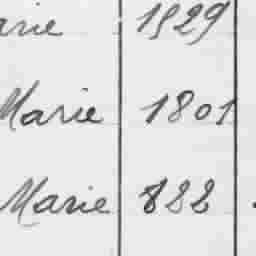 arie 1929
Marie 1801
Marie 882